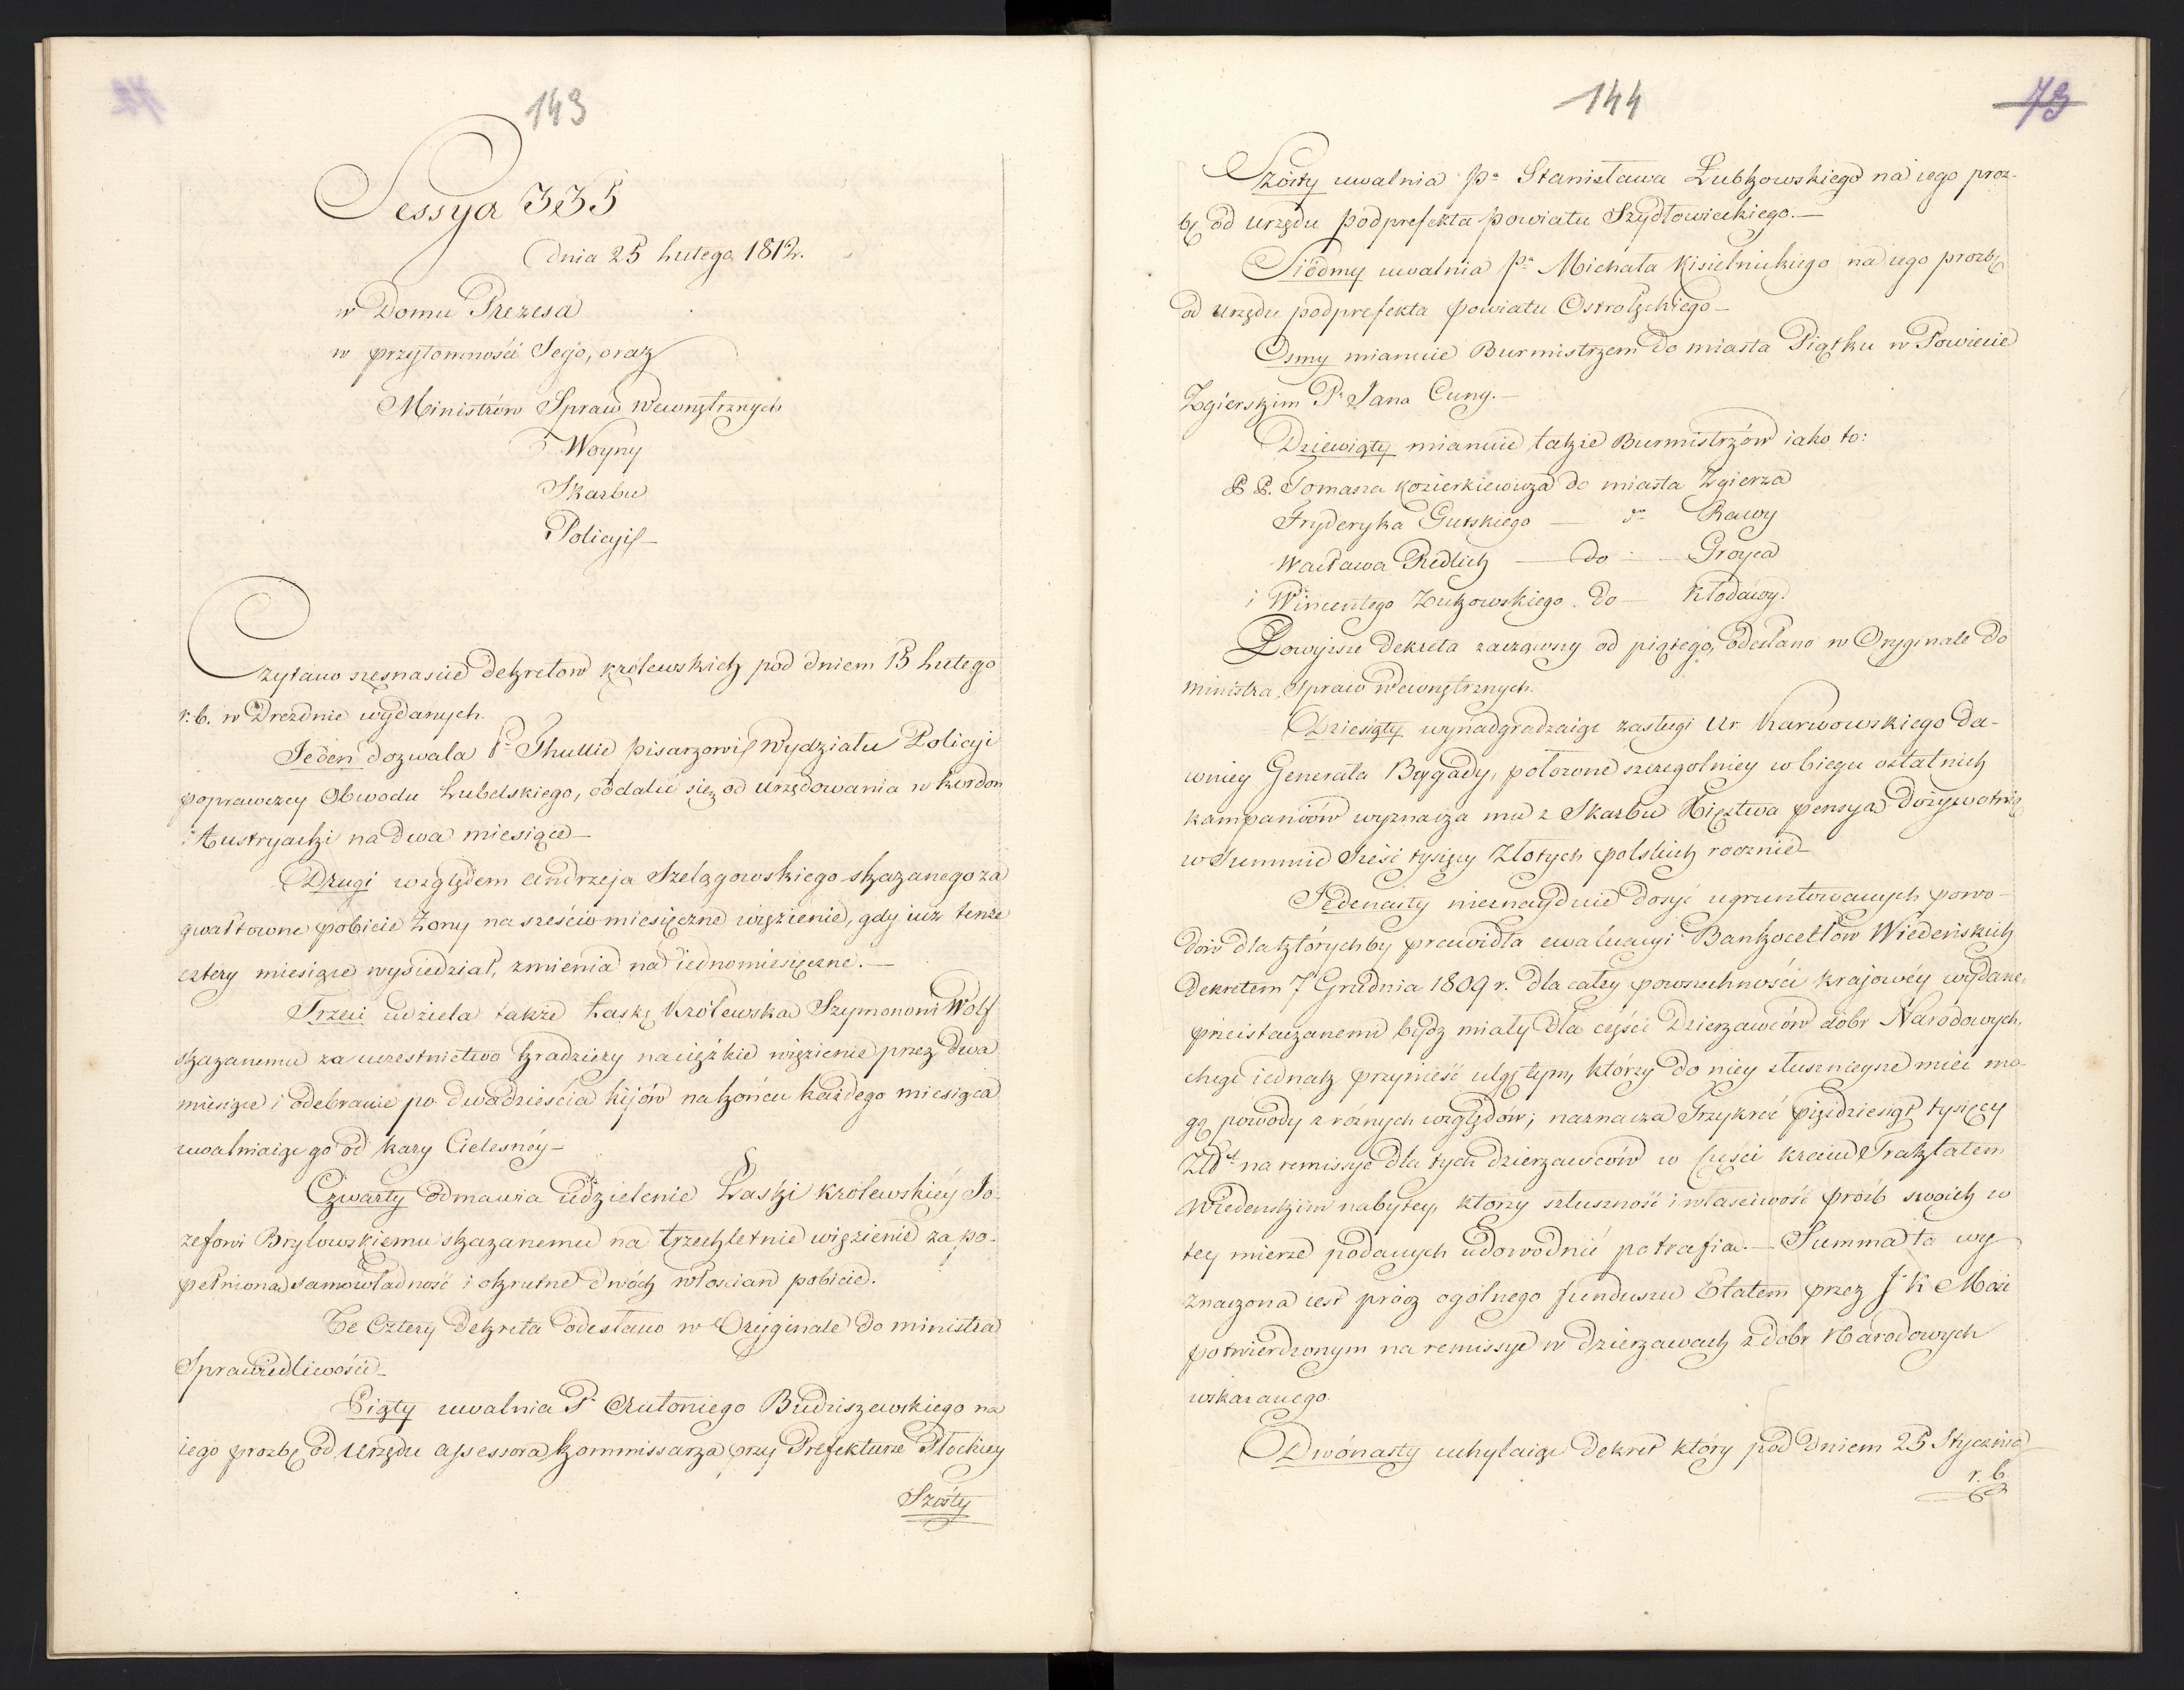 143
Sessya 335
dnia 25 Lutego 1812.
w Domu Prezesa
w przytomności Jego, oraz
Ministrów Spraw Wewnętrznych
Woyny
Skarbu
Policyi
Czytano szesnaście dekretow królewskich pod dniem 15 Lutego
r. b. w Dreznie wydanych.
Jeden dozwala Pu Thullie pisarzowi Wydziału Policyi
poprawczey Obwodu Lubelskiego, oddalić się od urzędowania w kordon
Austryacki na dwa miesiące —
Drugi względem Andrzeja Szelągowskiego skazanego za
gwałtowne pobicie Żony na sześciomiesięczne więzienie, gdy iuż tenże
cztery miesiące wysiedział, zmienia na iednomiesięczne. —
Trzeci udziela także Łaskę Królewska Szymonowi Wolf
skazanemu za uczestnictwo kradzieży na ciężkie więzienie przez dwa
miesiące i odebranie po dwadzieścia kijów na końcu każdego miesiąca
uwalniaiąc go od kary Cielesnéy —
Czwarty odmawia udzielenie Łaski królewskiéy Jo-
zefowi Brylowskiemu skazanemu na trzechletnie więzienie za po-
pełnioną samowładność i okrutne dwóch włoscian pobicie.
Te Cztery dekreta odesłano w Oryginale do ministra
Sprawiedliwości —
Piąty uwalnia P. Antoniego Budziszewskiego na
iego prozbę od Urzędu assessora kommissarza przy Prefekturze Płockiey
Szósty
144
73
Szósty uwalnia Pa Stanisława Łubkowskiego na iego proz-
bę od urzędu podprefekta powiatu Szydłowieckiego. —
Siódmy uwalnia Pa Michała Kisielnickiego na iego prozbę
od urzędu podprefekta powiatu Ostrołęckiego —
Osmy mianuie Burmistrzem do miasta Piątku w Powiecie
Zgierskim P. Jana Cuny. —
Dziewiąty mianuie także Burmistrzów iako to:
P P. Tomasza Kozierkiewicza do miasta Zgierza
Fryderyka Gutskiego — do Rawy
Wacława Redlich — do — Groyca
i Wincentego Żutkowskiego do — Kłodawy.
Powyższe dekreta zacząwszy od piątego, odesłano w Oryginale do
ministra Spraw Wewnętrznych.
Dziesiąty wynadgradzaiąc zasługi Ur Karwowskiego da-
wniey Generała Brygady, położone szczególniey w biegu ostatnich
kampaniów wyznacza mu z Skarbu Xięstwa pensya dożywotnią
w Summie sześć tysięcy Złotych polskich rocznie —
Jedenasty nieznayduie dosyć ugruntowanych powo-
dów dla których by prawidła ewaluacyi Bankocetlów Wiedeńskich
Dekretem 7 Grudnia 1809 r. dla całey powszechności krajowéy wydane,
przeistaczanemi bydz miały dla części Dzierzawców dóbr Narodowych,
chcąc iednak przynieść ulgę tym, którzy do niey słusznieysze mieć mo-
gą powody z różnych względów; naznacza Trzykroć pięćdziesiąt tysięcy
Złp na remissye dla tych dzierzawców w części kraiu Traktatem
Wiedenskim nabytey, którzy słuszność i własciwość próźb swoich w
tey mierze podanych udowodnić potrafia. — Summa ta wy
znaczona iest prócz ogólnego funduszu Etatem przez J K Mość
potwierdzonym na remissye w dzierzawach z dóbr Narodowych
wskazanego.
Dwónasty uchylaiąc dekret który pod dniem 25 Stycznia
r. b.